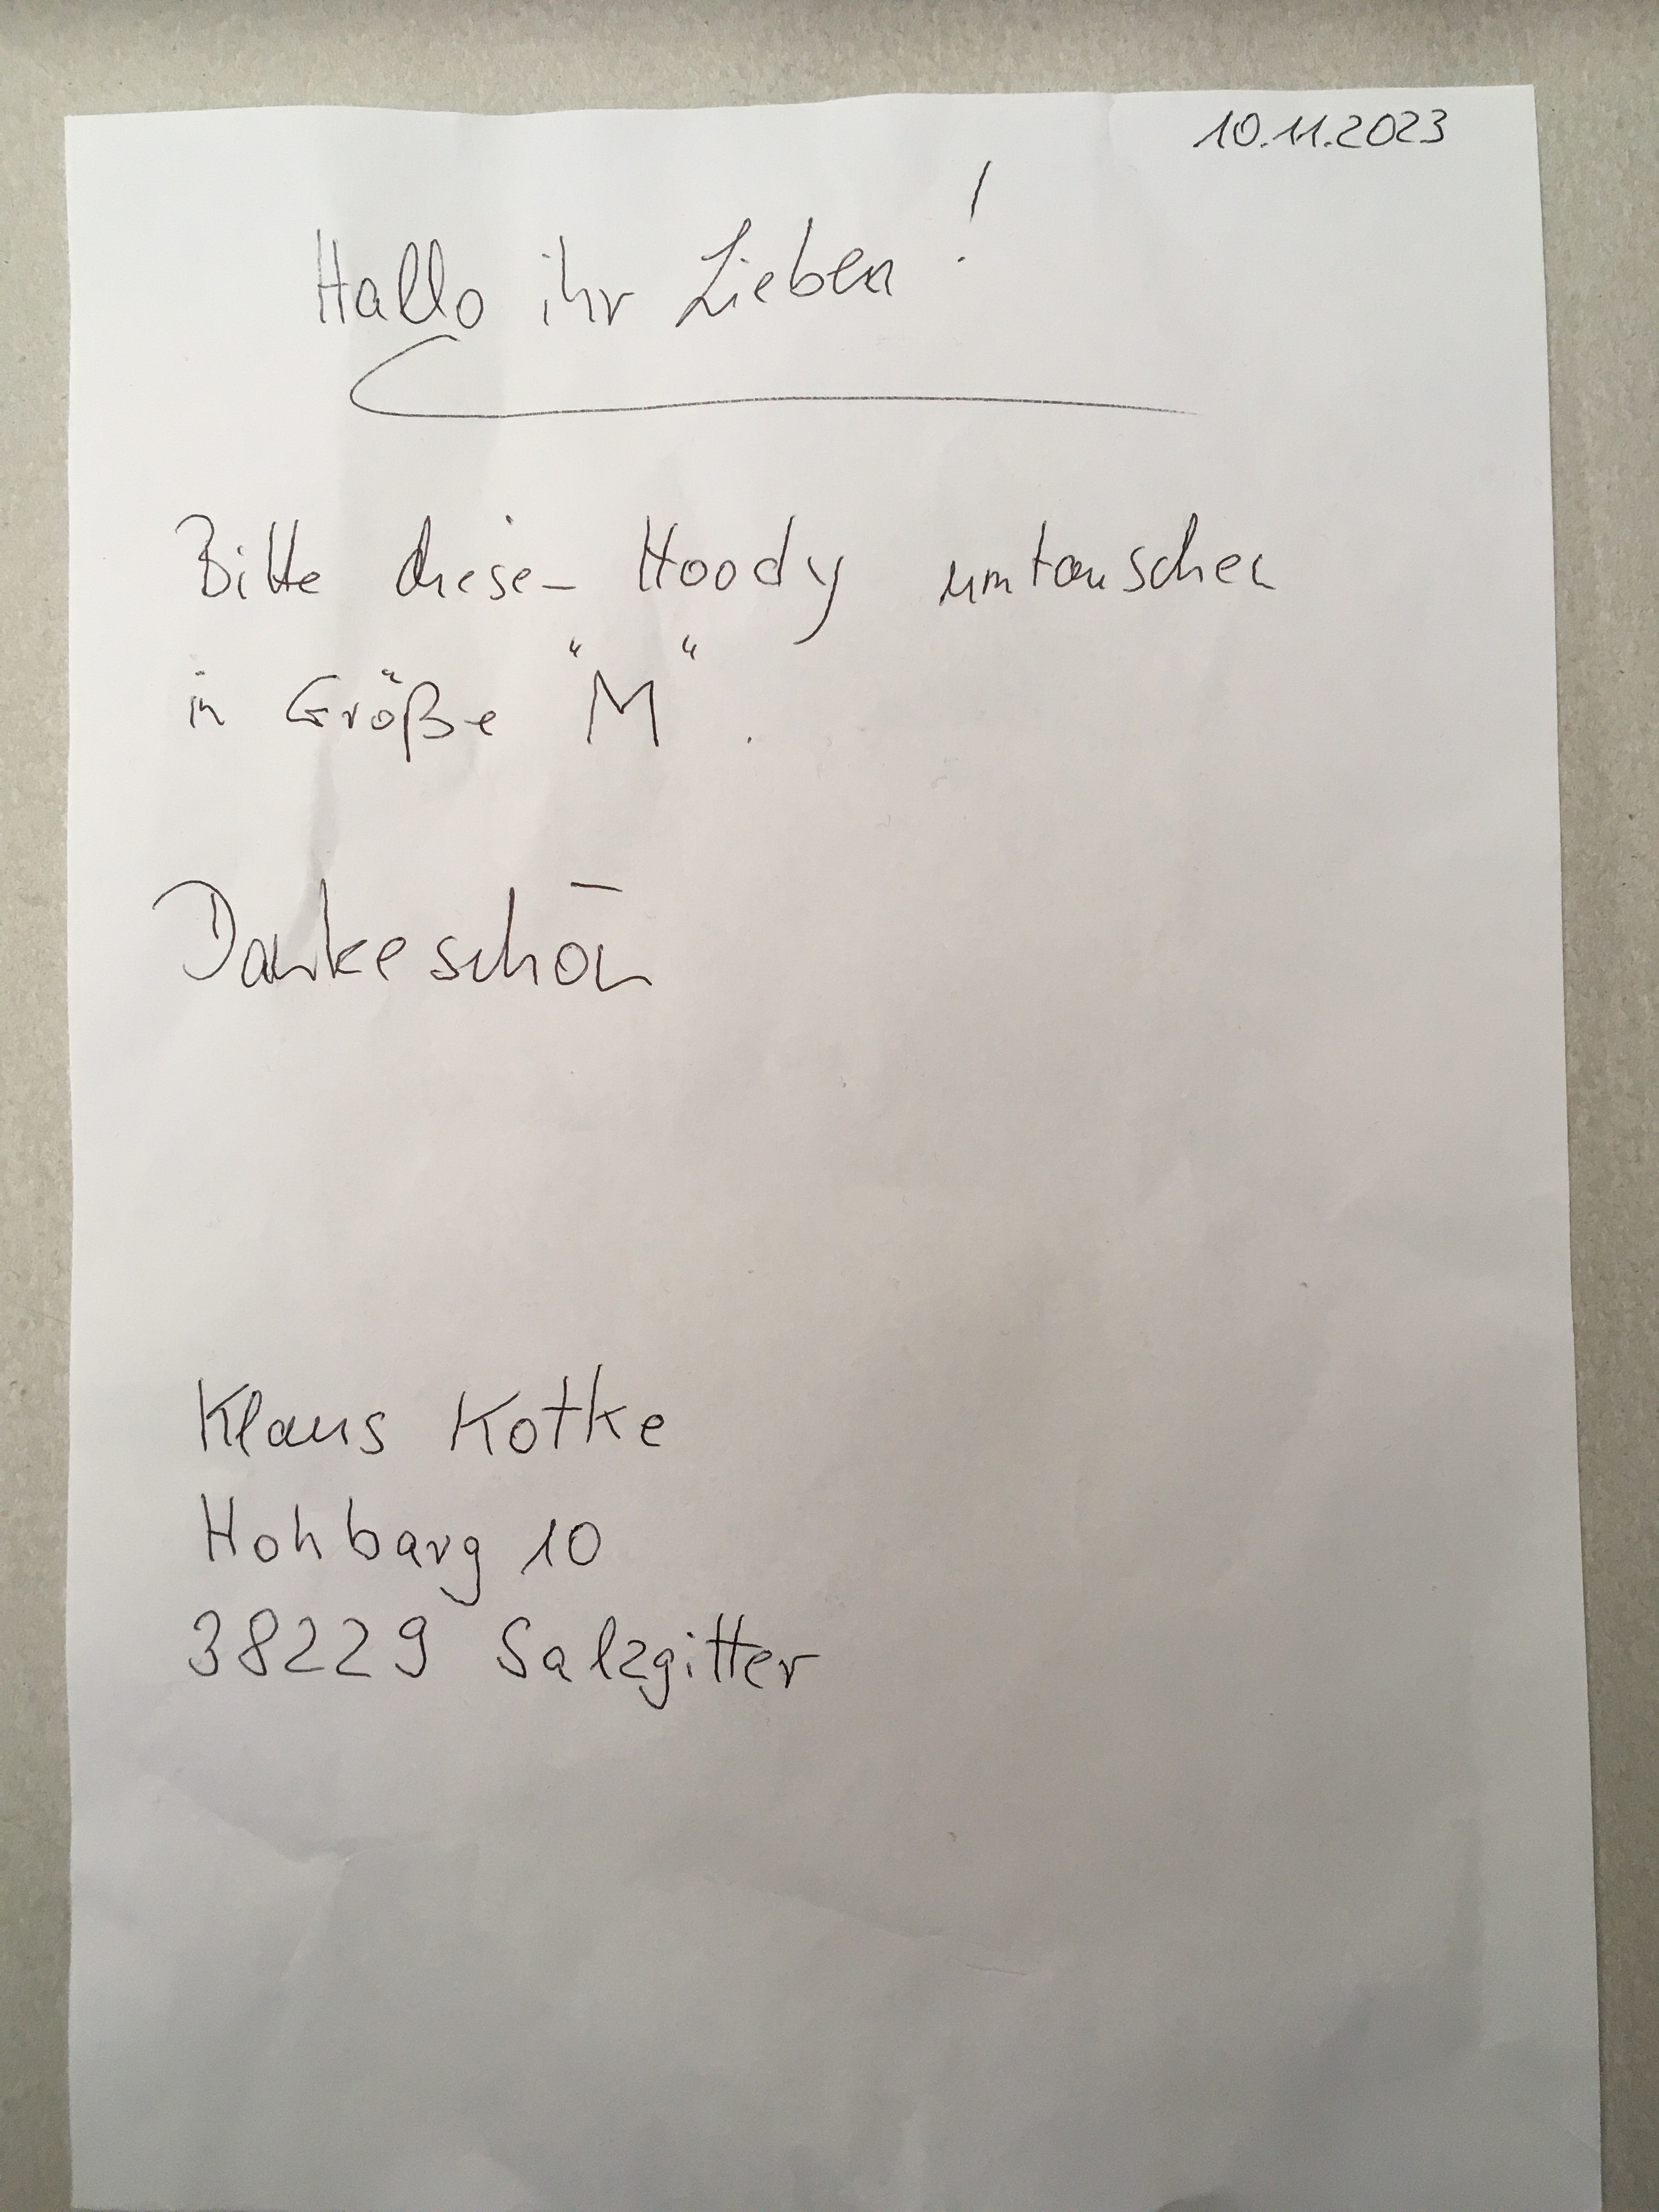 10.11.2023
Hallo ihr Lieben!
Bitte diesen Hoody umtauschen
in Größe "M".
Dankeschön
Klaus Kotke
Hohbarg 10
38229 Salzgitter